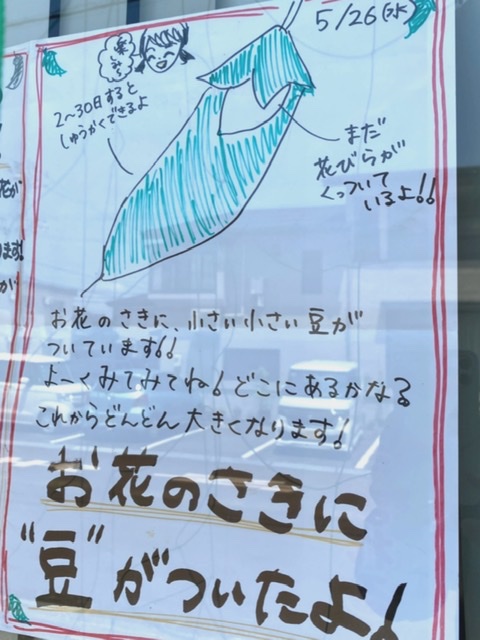 5/26(水)
楽しみ
2〜30日すると
しゅうかくできるよ
まだ
花びらが
くっついて
いるよ!!
お花のさきに、小さい小さい豆が
ついています!!
よーくみてみてね!どこにあるかな?
これからどんどん大きくなります!
お花のさきに
"豆"がついたよ!
花が
ます!
が